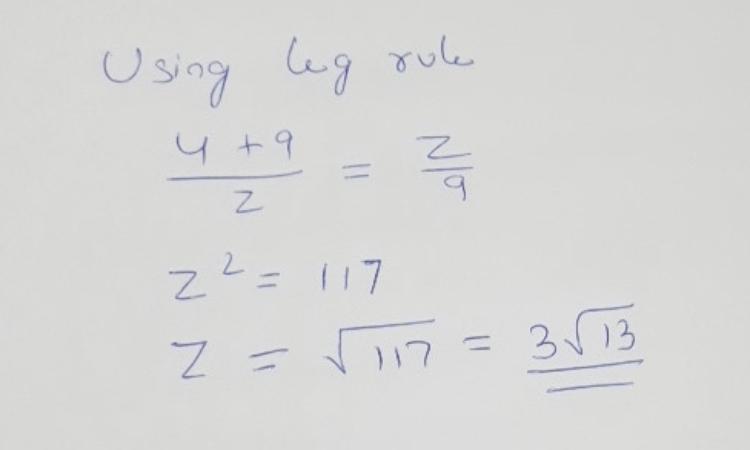 Using leg rule
4 + 9 / z = z / 9
z² = 117
z = √117 = 3√13